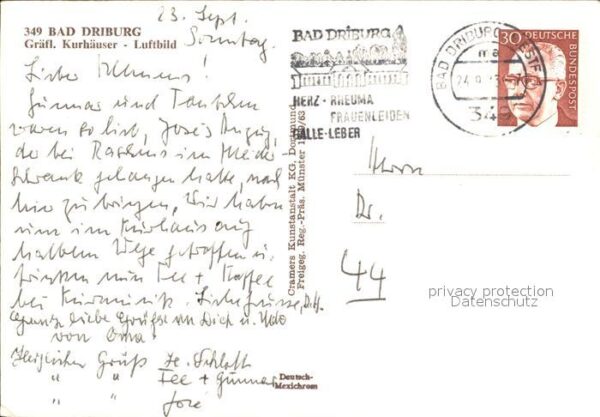 349 BAD DRIBURG
Gräfl. Kurhäuser - Luftbild
23. Sept.
Sonntag.
Lieber Klemens!
Gunnar und
waren so lieb, José's Anzug,
der bei Rasmus im Kleider
schrank gehangen hatte, nach
hier zu bringen, Wir haben
uns im Kurhaus auf
halbem Wege getroffen u.
trinken nun Tee + Kaffee
bei Kurmusik.
Ganz liebe Grüsse an Dich u. Udo
von Oma
Herzlichen Gruß
" " Fee + Gunnar
José
Cramers Kunstanstalt KG, Dortmund
Freigeg. Reg.-Präs. Münster
Deutsch-
Mexichrom
BAD DRIBURG
HERZ - RHEUMA
FRAUENLEIDEN
GALLE-LEBER
BAD DRIBURG
ma
349
30
DEUTSCHE
BUNDESPOST
Herrn
Dr.
44
privacy protection
Datenschutz